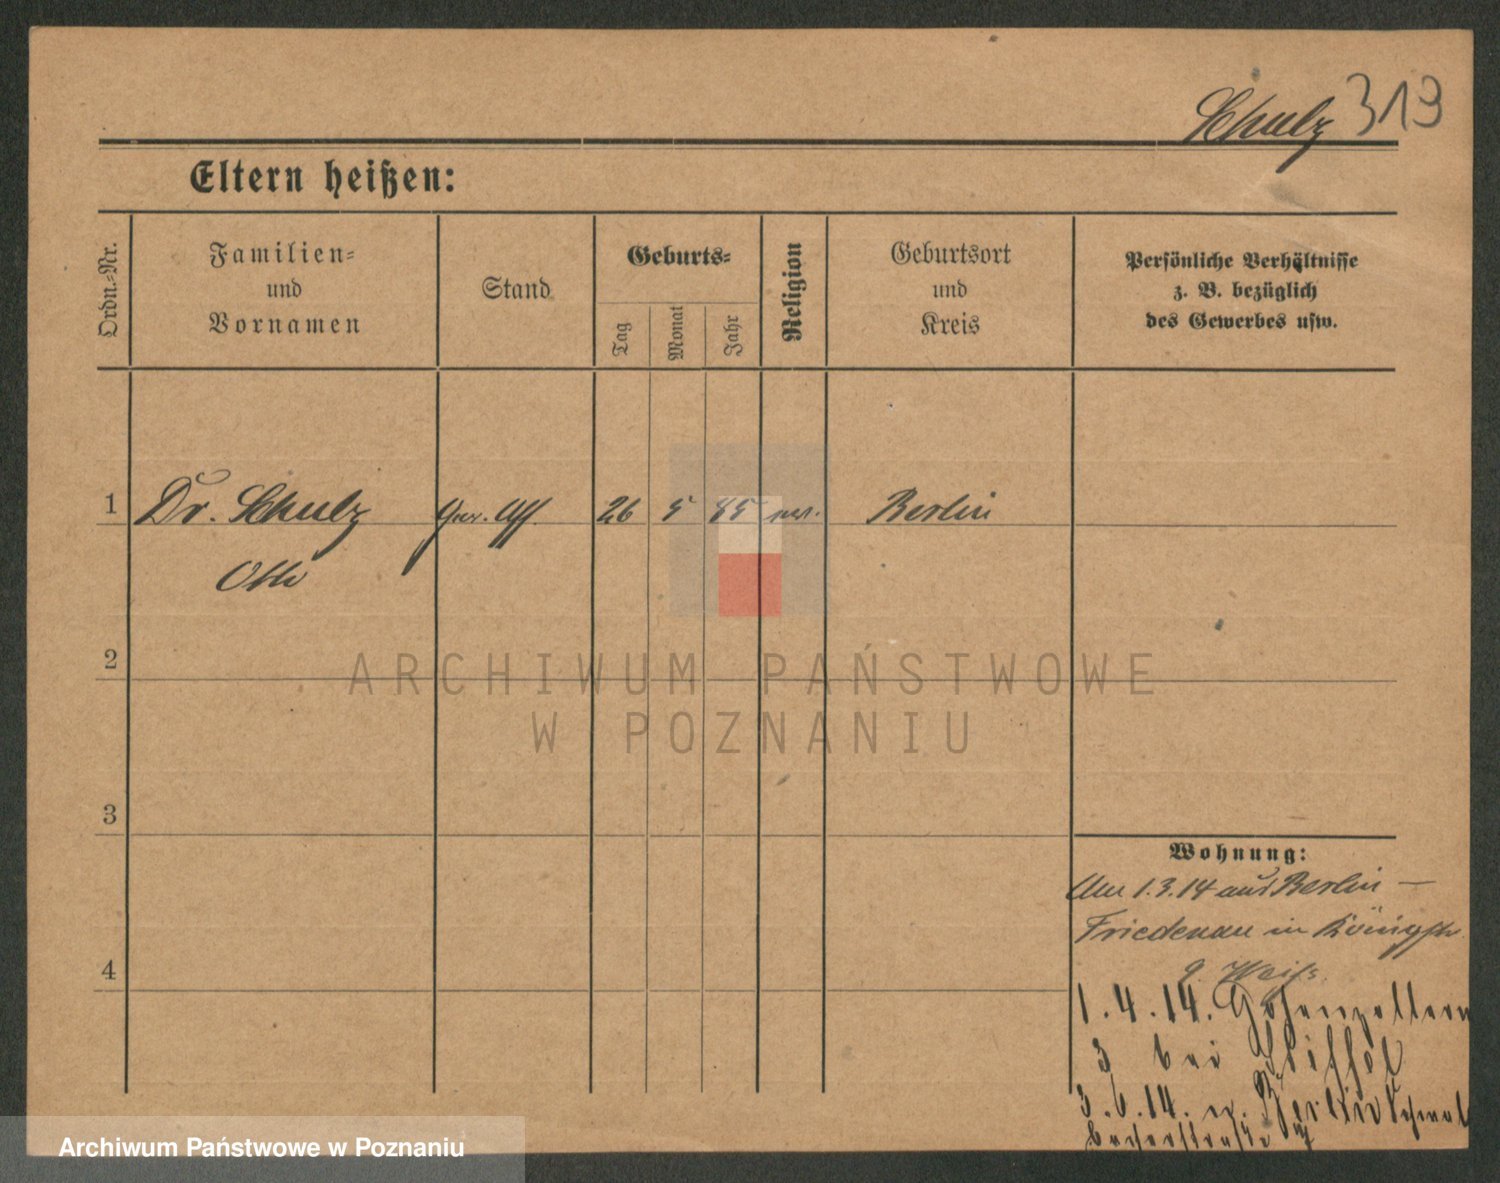 Schulz 319
Eltern heißen:
Ordn.-Nr.
Familien-
und
Vornamen
Stand
Geburts-
Tag
Monat
Jahr
Religion
Geburtsort
und
Kreis
Persönliche Verhältnisse
z. B. bezüglich
des Gewerbes usw.
1 Dr. Schulz Ger. Ass. 26 5 85 ev. Berlin
Otto
2
3
4
Wohnung:
Am 1.3.14 aus Berlin —
Friedenau in Königstr.
9. Weiß.
1.4.14. Hohenzollern
3 bei
3.6.14. n. Berlin
ARCHIWUM PAŃSTWOWE
W POZNANIU
Archiwum Państwowe w Poznaniu